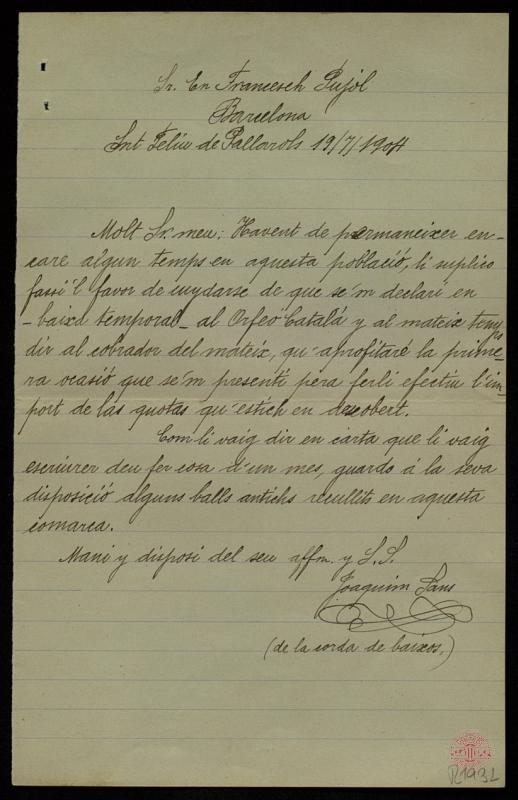 Sr. En Francesch Pujol
Barcelona
Snt Feliu de Pallarols 19/7/1904
Molt Sr. meu: Havent de permaneixer en-
care algun temps en aquesta població, li suplico
fassi'l favor de cuydarse de que se'm declari en
-baixa temporal- al Orfeó Catalá y al mateix temps
dir al cobrador del mateix, qu'aprofitaré la prime-
ra ocasió que se'm presenti pera ferli efectiu l'im-
port de las quotas qu'estich en descobert.
Com li vaig dir en carta que li vaig
escriurer deu fer cosa d'un mes, guardo á la seva
disposició alguns balls antichs recullits en aquesta
comarca.
Mani y disposi del seu affm. y S.S.
Joaquim Sans
(de la corda de baixos.)
R193L